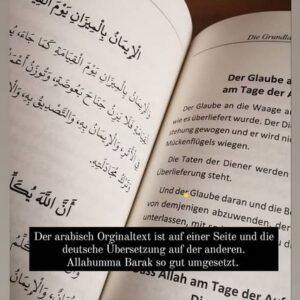 الْإِيمَانُ بِالْمِيزَانِ يَوْمَ الْقِيَامَةِ
وَالْإِيمَانُ بِالْمِيزَانِ يَوْمَ الْقِيَامَةِ كَمَا جَاءَ،
الْقِيَامَةِ فَلَا يَزِنُ جَنَاحَ بَعُوضَةٍ، وَتُوزَنُ أَعْمَالُ
فِي الْأَثَرِ، وَالْإِيمَانُ بِهِ، وَالتَّصْدِيقُ بِهِ،
وَتَرْكُ مُجَادَلَتِهِ.
أَنَّ اللَّهَ
Die Grundla
Der Glaube a
am Tage der A
Der Glaube an die Waage am
wie es überliefert wurde. Der Di
stehung gewogen und er wird ni
Mückenflügels wiegen.
Die Taten der Diener werden
Überlieferung steht.
Und der Glaube daran und die B
von demjenigen abzuwenden, der
unterlassen, mit
ss Allah am Tage der A
Der arabisch Orginaltext ist auf einer Seite und die
deutsche Übersetzung auf der anderen.
Allahumma Barak so gut umgesetzt.